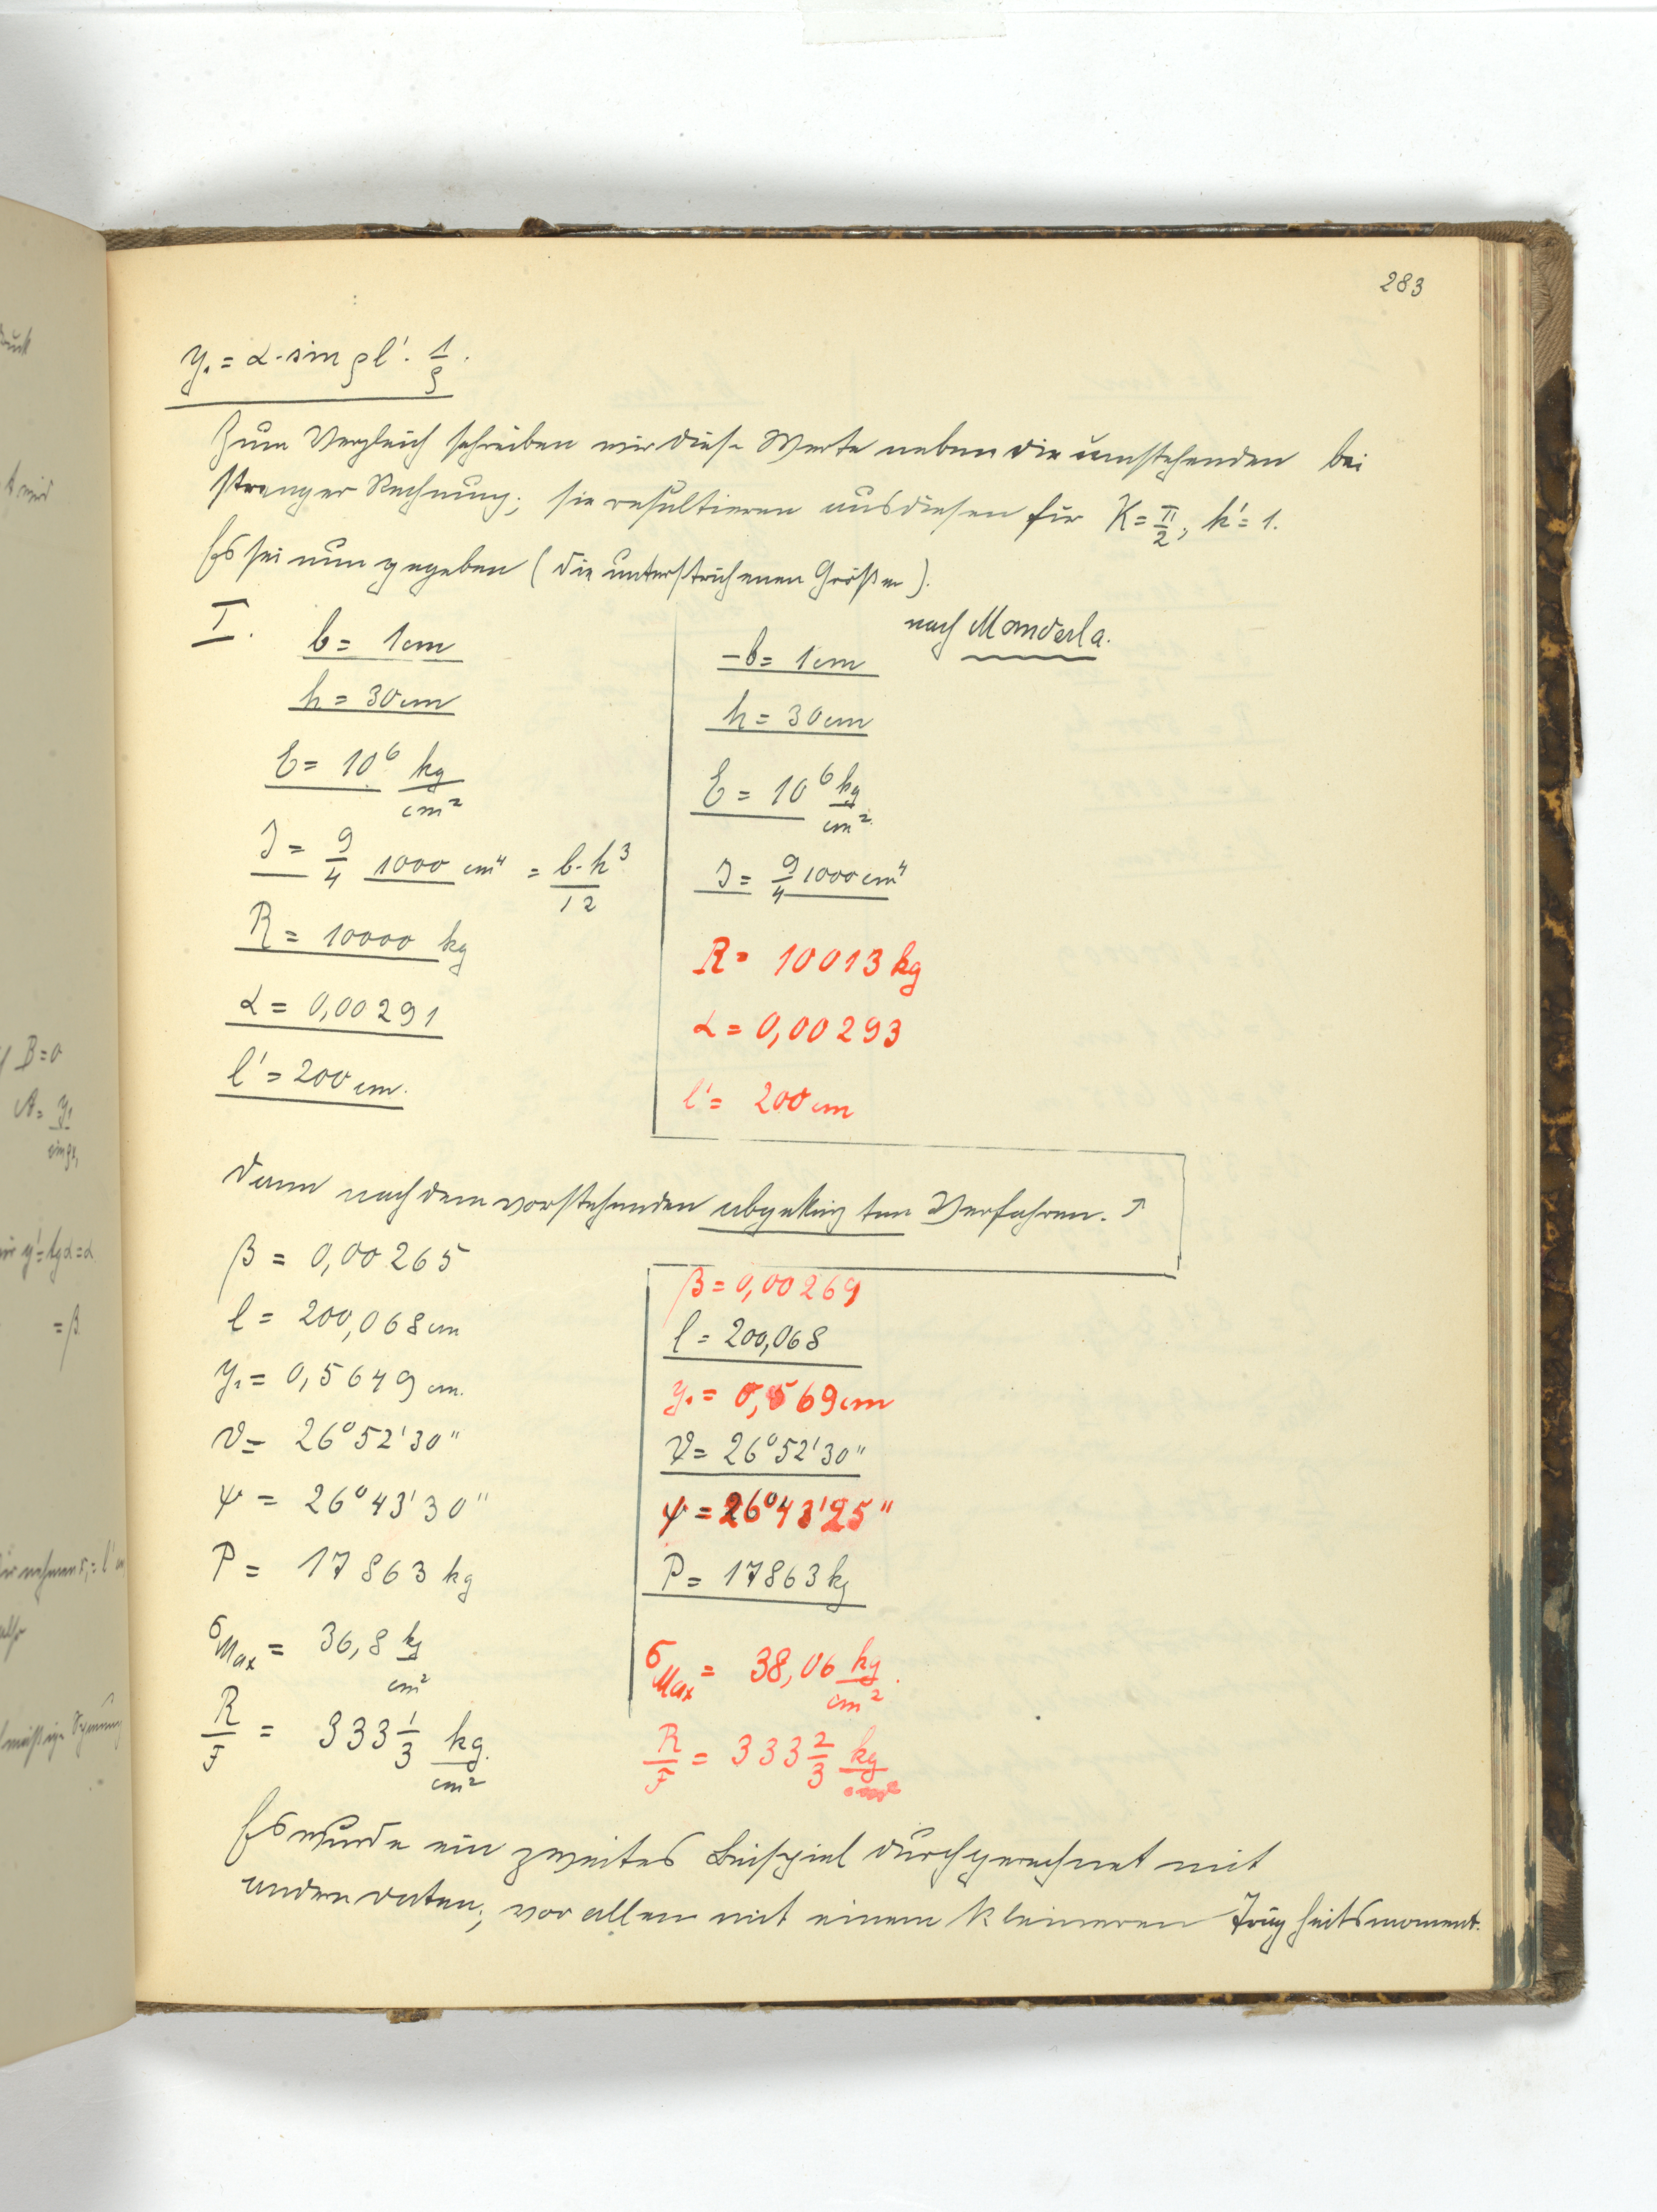 283
y₁ = α · sin ρl' · 1/ρ.
Zum Vergleich schreiben wir diese Werte neben die umstehenden bei
strenger Rechnung; sie resultieren aus diesen für K = π/2; k' = 1.
Es sei nun gegeben (die unterstrichenen Größen).
I.
b = 1 cm
h = 30 cm
E = 10⁶ kg/cm²
J = 9/4 1000 cm⁴ = b·h³/12
R = 10000 kg
α = 0,00291
l' = 200 cm.
nach Manderla.
b = 1 cm
h = 30 cm
E = 10⁶ kg/cm²
J = 9/4 1000 cm⁴
R = 10013 kg
α = 0,00293
l' = 200 cm
Dann nach dem vorstehenden abgekürzten Verfahren.
β = 0,00265
l = 200,068 cm
y₁ = 0,5649 cm.
ϑ = 26°52'30"
ψ = 26°43'30"
P = 17863 kg
σMax = 36,8 kg/cm²
R/F = 333 1/3 kg/cm²
β = 0,00269
l = 200,068
y₁ = 0,569 cm
ϑ = 26°52'30"
ψ = 26°43'25"
P = 17863 kg
σMax = 38,06 kg/cm².
R/F = 333 2/3 kg/cm²
Es wurde ein zweites Beispiel durchgerechnet mit
andern Daten; vor allem mit einem kleineren Trägheitsmoment.
B = 0
A = y₁
= β